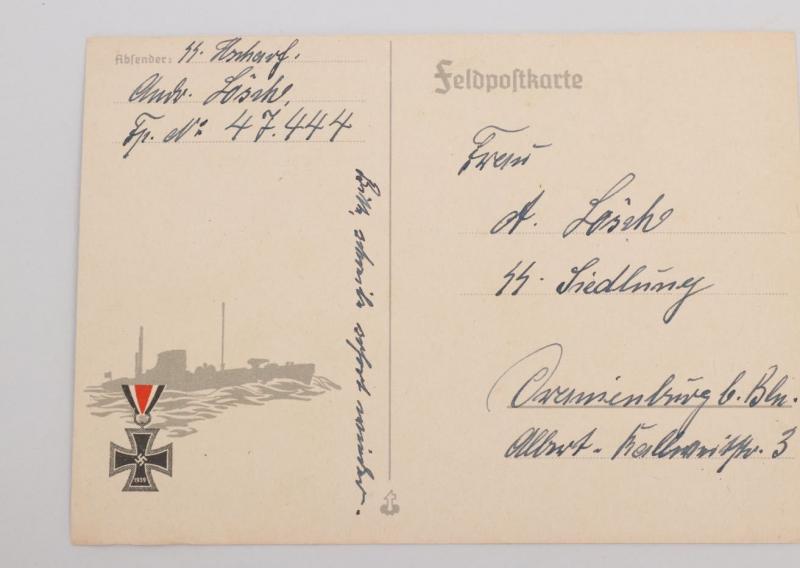 Absender: SS. Uscharf.
Andr. Lösch,
Fp. No: 47.444
Bitte, schreib sofort wieder.
1939
Feldpostkarte
Frau
A. Lösch
SS. Siedlung
Oranienburg b. Bln.
Albert-Kallweitstr. 3